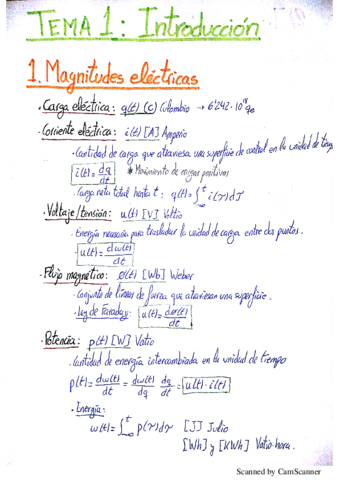 TEMA 1: Introducción
1. Magnitudes eléctricas
· Carga eléctrica: q(t) (C) Culombio → 6'242·10^18 qe
· Corriente eléctrica: i(t) [A] Amperio
· Cantidad de carga que atraviesa una superficie de control en la unidad de tiempo
i(t) = dq/dt * Movimiento de cargas positivas
· Carga neta total hasta t: q(t) = ∫_{-∞}^{t} i(τ)dτ
· Voltaje/tensión: u(t) [V] Voltio
· Energía necesaria para trasladar la unidad de carga entre dos puntos.
· u(t) = dw(t)/dt
· Flujo magnético: Ø(t) [Wb] Weber
· Conjunto de líneas de fuerza que atraviesan una superficie.
· Ley de Faraday: u(t) = dø(t)/dt
· Potencia: p(t) [W] Vatio
· Cantidad de energía intercambiada en la unidad de tiempo
p(t) = dw(t)/dt = dw(t)/dq · dq/dt = u(t)·i(t)
· Energía:
w(t) = ∫_{-∞}^{t} p(τ)dτ [J] Julio
[Wh] y [KWh] Vatio-hora.
Scanned by CamScanner